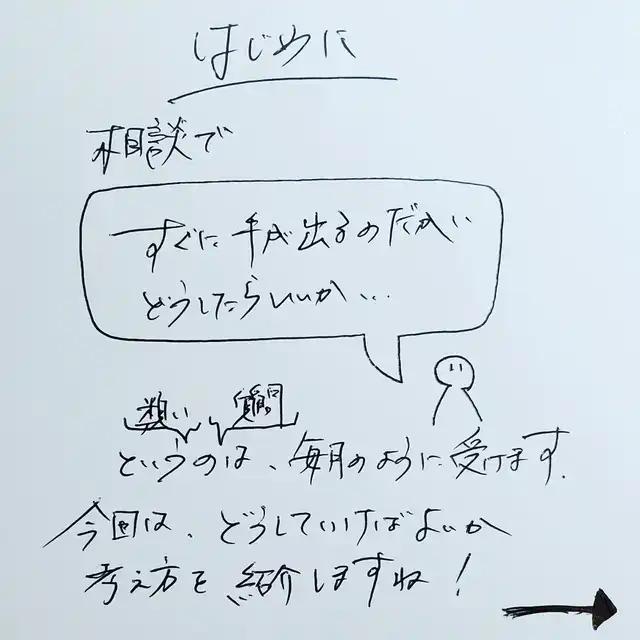 はじめに
相談で
すぐに手が出るのだがい
どうしたらいいか...
類い 質問
というのは、毎月のように受けます.
今回は、どうしていけばよいか
考え方を紹介しますね!